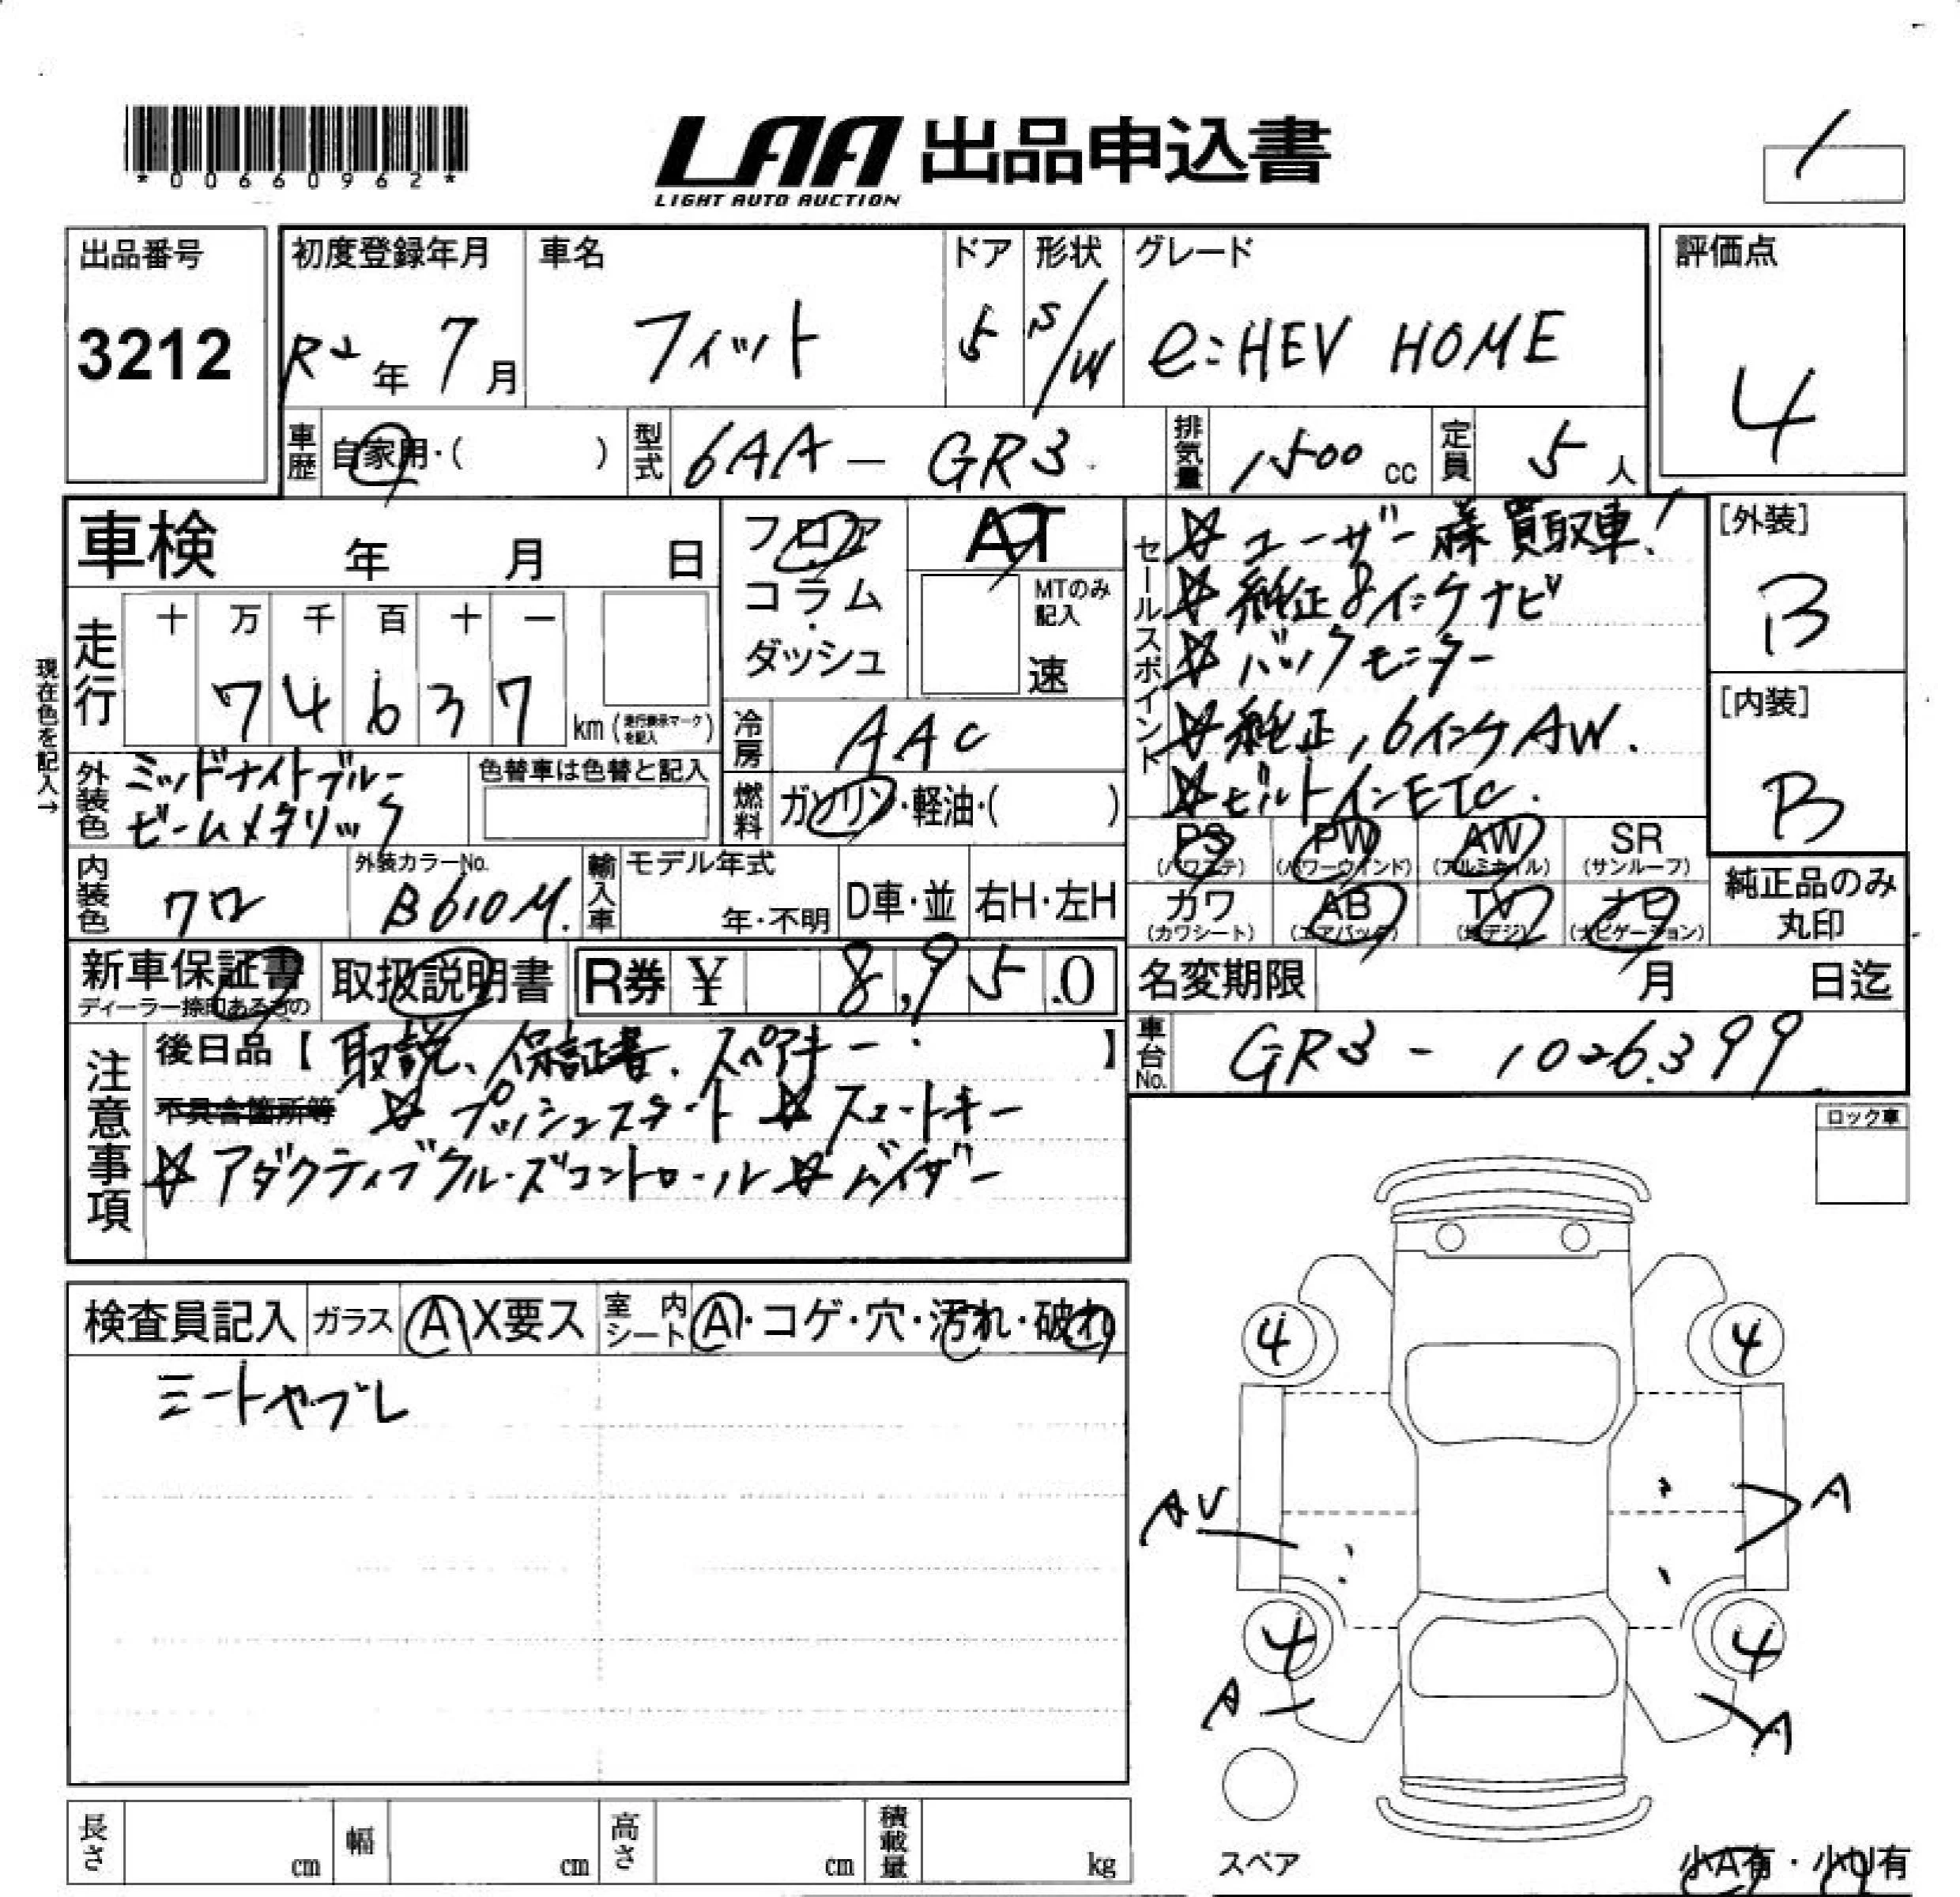 *00660962*
LAA 出品申込書
LIGHT AUTO AUCTION
出品番号 初度登録年月 車名 ドア 形状 グレード 評価点
3212 R2年 7月 フィット 5 S/W e:HEV HOME 4
車歴 自家用・( ) 型式 6AA - GR3 排気量 1500 cc 定員 5 人
車検 年 月 日 フロア・コラム・ダッシュ AT
MTのみ記入 速
セールスポイント
☆ユーザー様買取車!
☆純正8インチナビ
☆バックモニター
☆純正16インチAW.
☆ビルトインETC.
[外装] B
[内装] B
現在色を記入→
走行 十 万 千 百 十 一
74637 km (走行表示マークを記入)
冷房 AAC
外装色 ミッドナイトブルービームメタリック 色替車は色替と記入
燃料 ガソリン・軽油・( )
PS (パワステ) PW (パワーウインド) AW (アルミホイル) SR (サンルーフ)
カワ (カワシート) AB (エアバック) TV (地デジ) ナビ (ナビゲーション) 純正品のみ丸印
内装色 クロ 外装カラーNo. B610M. 輸入車 モデル年式 年・不明 D車・並 右H・左H
新車保証書 ディーラー捺印あるもの 取扱説明書 R券 ¥ 8,950 名変期限 月 日迄
注意事項 後日品【取説、保証書、スペアキー】
車台No. GR3 - 1026399
不具合箇所等 ☆プッシュスタート ☆スマートキー
☆アダクティブクルーズコントロール ☆バイザー
ロック車
検査員記入 ガラス A X要ス 室内シート A・コゲ・穴・汚れ・破れ
シートヤブレ
4 4
AV A
4 4
A A
スペア
長さ cm 幅 cm 高さ cm 積載量 kg
小A有・小U有